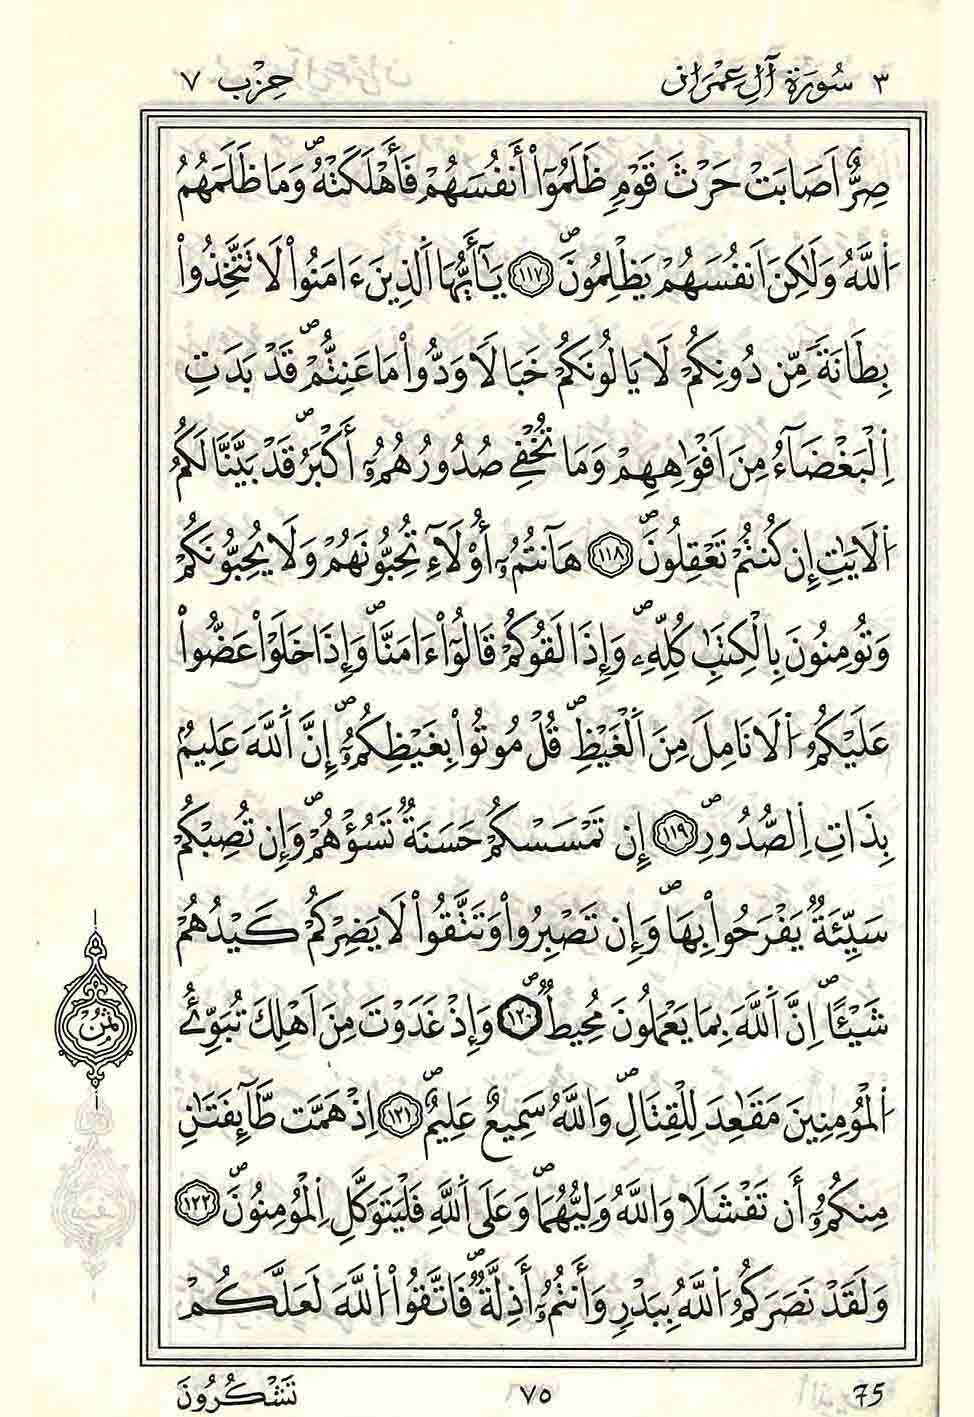 ٣ سُورَةُ آلِ عِمْرَانَ حِزْب ٧
صِرٌّ اَصَابَتْ حَرْثَ قَوْمٖ ظَلَمُوٓاْ أَنفُسَهُمْ فَأَهْلَكَتْهُۖ وَمَا ظَلَمَهُمُ
اُ۬للَّهُ وَلَٰكِنَ اَنفُسَهُمْ يَظْلِمُونَۖ ١١٧ يَٰٓأَيُّهَا اَ۬لذِينَ ءَامَنُواْ لَا تَتَّخِذُواْ
بِطَانَةٗ مِّن دُونِكُمْ لَا يَالُونَكُمْ خَبَالاٗ وَدُّواْ مَا عَنِتُّمْۖ قَدْ بَدَتِ
اِ۬لْبَغْضَآءُ مِنَ اَفْوَٰهِهِمْ وَمَا تُخْفِے صُدُورُهُمُۥٓ أَكْبَرُۖ قَدْ بَيَّنَّا لَكُمُ
اُ۬لَايَٰتِ إِن كُنتُمْ تَعْقِلُونَۖ ١١٨ هَآنتُمُۥٓ أُوْلَآءِ تُحِبُّونَهُمْ وَلَا يُحِبُّونَكُمْ
وَتُومِنُونَ بِالْكِتَٰبِ كُلِّهِۦۖ وَإِذَا لَقُوكُمْ قَالُوٓاْ ءَامَنَّاۖ وَإِذَا خَلَوْاْ عَضُّواْ
عَلَيْكُمُ اُ۬لَانَامِلَ مِنَ اَ۬لْغَيْظِۖ قُلْ مُوتُواْ بِغَيْظِكُمُۥٓۖ إِنَّ اَ۬للَّهَ عَلِيمُۢ
بِذَاتِ اِ۬لصُّدُورِۖ ١١٩ إِن تَمْسَسْكُمْ حَسَنَةٞ تَسُؤْهُمْۖ وَإِن تُصِبْكُمْ
سَيِّئَةٞ يَفْرَحُواْ بِهَاۖ وَإِن تَصْبِرُواْ وَتَتَّقُواْ لَا يَضِرْكُمْ كَيْدُهُمْ
شَيْـًٔاۖ اِنَّ اَ۬للَّهَ بِمَا يَعْمَلُونَ مُحِيطٞۖ ١٢٠ وَإِذْ غَدَوْتَ مِنَ اَهْلِكَ تُبَوِّئُ
ثُمُن
اُ۬لْمُومِنِينَ مَقَٰعِدَ لِلْقِتَالِۖ وَاللَّهُ سَمِيعٌ عَلِيمٌۖ ١٢١ اِذْ هَمَّت طَّآئِفَتَٰنِ
مِنكُمُۥٓ أَن تَفْشَلَا وَاللَّهُ وَلِيُّهُمَاۖ وَعَلَى اَ۬للَّهِ فَلْيَتَوَكَّلِ اِ۬لْمُومِنُونَۖ ١٢٢
وَلَقَدْ نَصَرَكُمُ اُ۬للَّهُ بِبَدْرٖ وَأَنتُمُۥٓ أَذِلَّةٞۖ فَاتَّقُواْ اُ۬للَّهَ لَعَلَّكُمْ
75 ٧٥ تَشْكُرُونَ